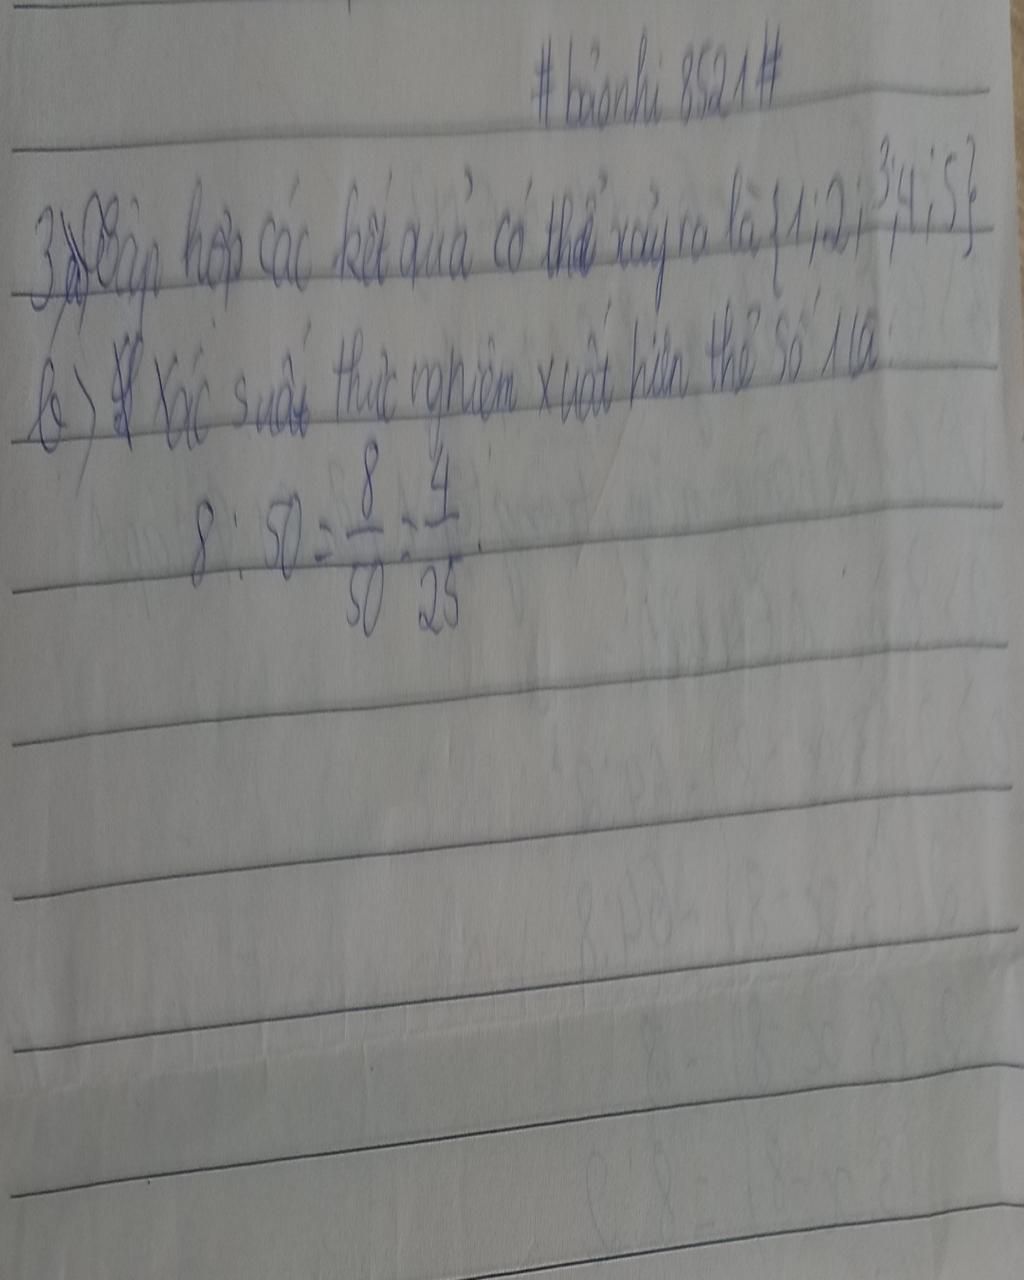 #bảonhi 8521#
3)a) Tập hợp các kết quả có thể xảy ra là {1;2;3;4;5}
b) Xác suất thực nghiệm xuất hiện thẻ số 1 là
8 : 50 = 8/50 = 4/25.